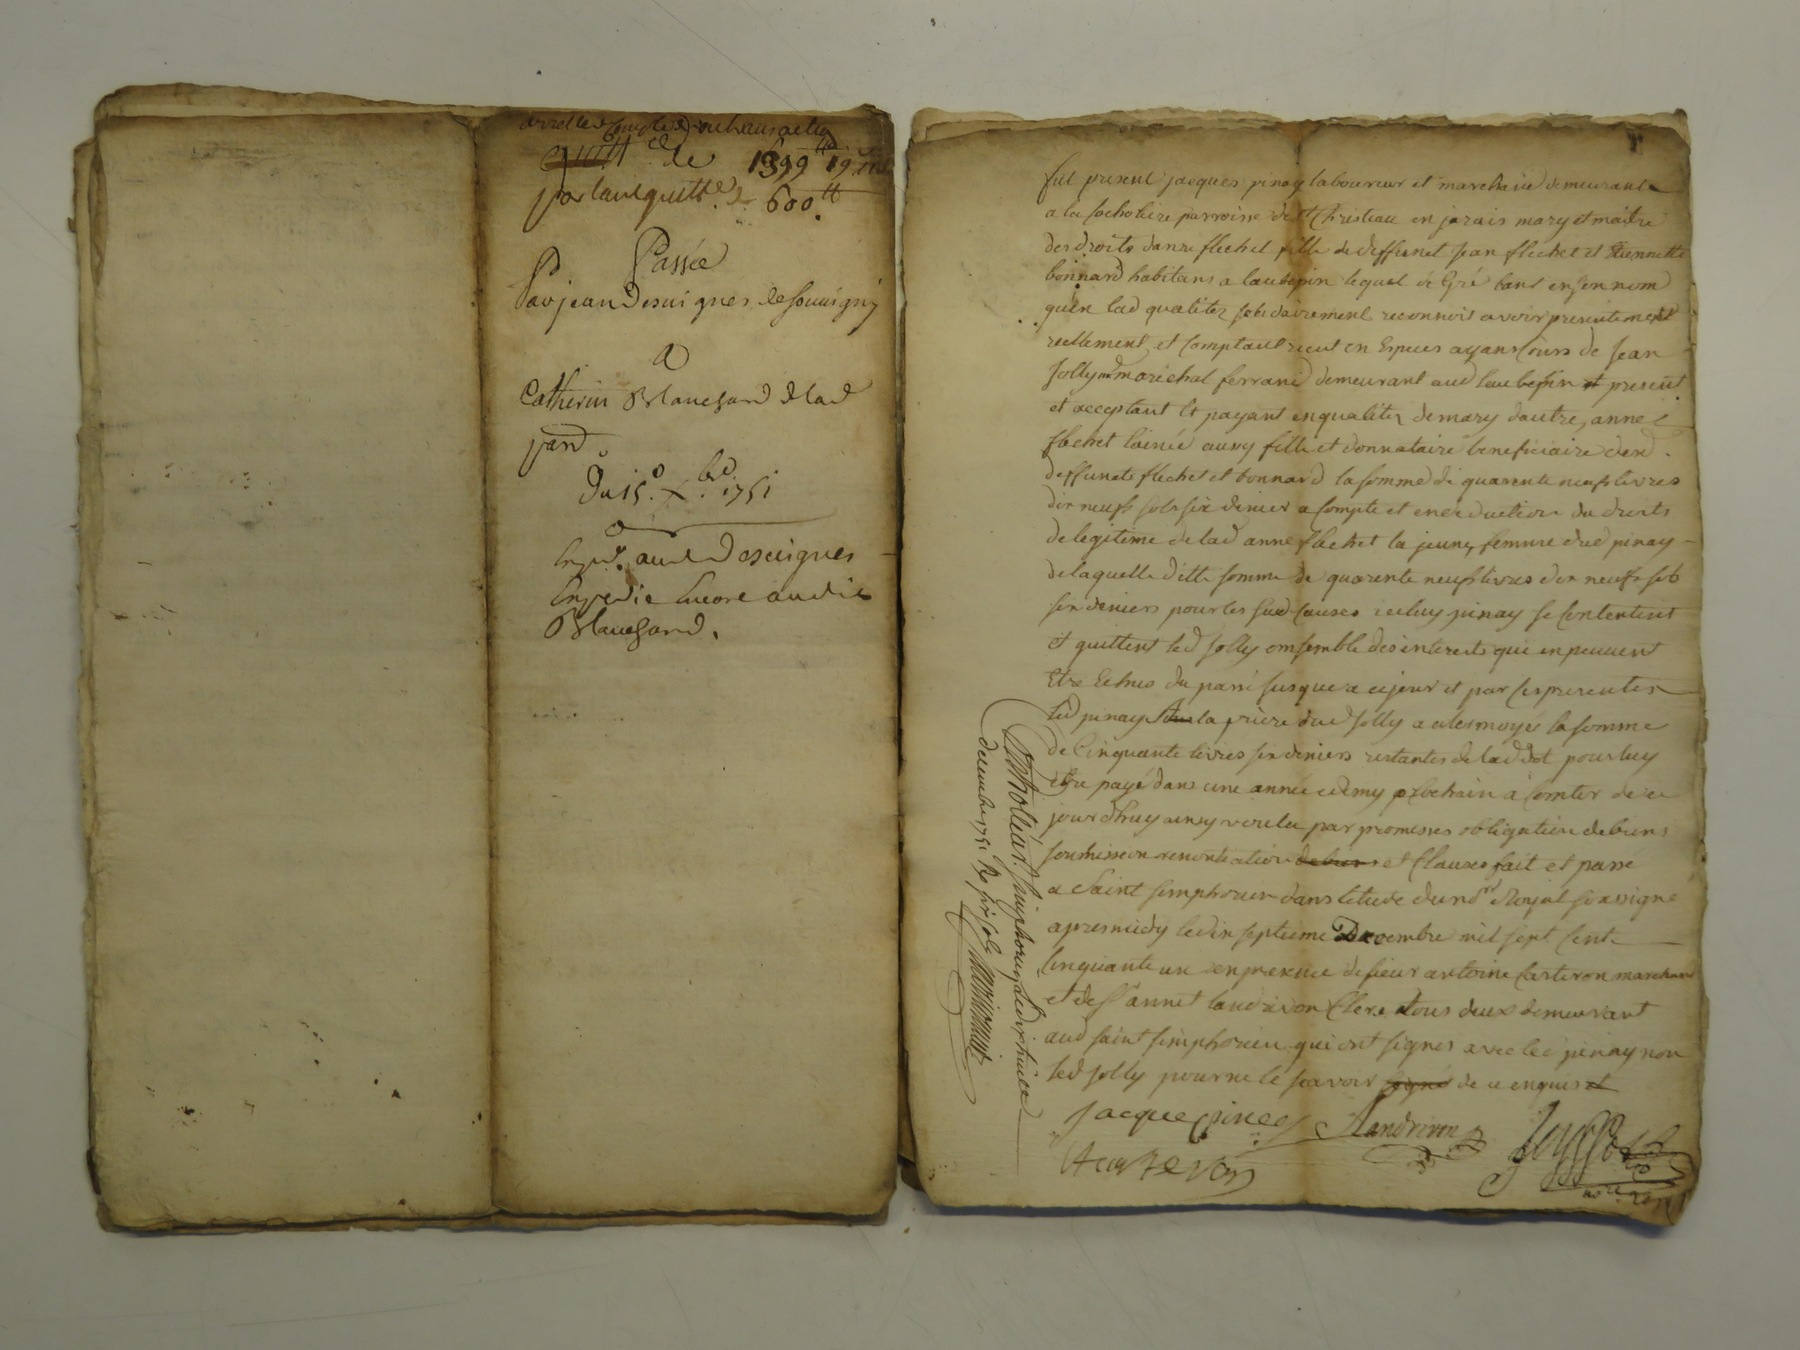 arrette de Compte et transaction
quitt.ce de 1399tt 19s
portant quitt.ce de 600.tt
Passée
Par jean Desuignes de Souuigny
A
Catherin Blanchard de lad
parr.
Du 15.e x.bre 1751
Exp.ée aud Desuignes
Expedié Encore audit
Blanchard.
fut present jacques pinay laboureur et marchand demeurant
a la socholiere parroisse de st Christeau en jarais mary et maitre
des droits danne flechet fille de deffunct jean flechet et Etiennette
bonnard habitans a laubepin lequel de Gré tant en son nom
quen lad qualitez solidairement reconnoit avoir presentement
reellement et Comptant recut en Especes ayans Cours de jean
jolly md marichal ferrand demeurant aud laubepin et present
et acceptant et payant en qualitez de mary dautre anne
flechet lainée aussy fille et donnataire beneficiaire desd.
deffuncts flechet et bonnard la somme de quarente neufs livres
dix neufs sols six denier a Compte et en deduction du droits
de legitime de lad anne flechet la jeune, femme dud pinay
de laquelle ditte somme de quarente neufs livres dix neufs sols
six deniers pour les sud Causes icelluy pinay se Contentent
et quittent led jolly ensemble des interests qui en peuvent
Etre Echus du passé jusque a ce jour et par les presentes
led pinay a la priere dud jolly a atermoyés la somme
de Cinquante livres six deniers restantes de lad dot pour luy
Etre payé dans une année et demy prochain a Comter de ce
jourdhuy ainsy voulu par promesses obligation de biens
soumission renontiation de biens et Clauses fait et passé
a Saint simphorien dans letude du nore Royal soussigné
apres midy le dix septieme Decembre mil sept Cent
Cinquante un en presence de sieur antoine Carteron marchand
et de sr annet landrivon Clerc tous deux demeurant
aud saint simphorien qui ont signés avec led pinay non
led jolly pour ne le scavoir signé de ce enquis et
jacque pinay Landrivon
A Carteron
Controlléa St simphorien le dixhuit
decembre 1751 Rs six sols